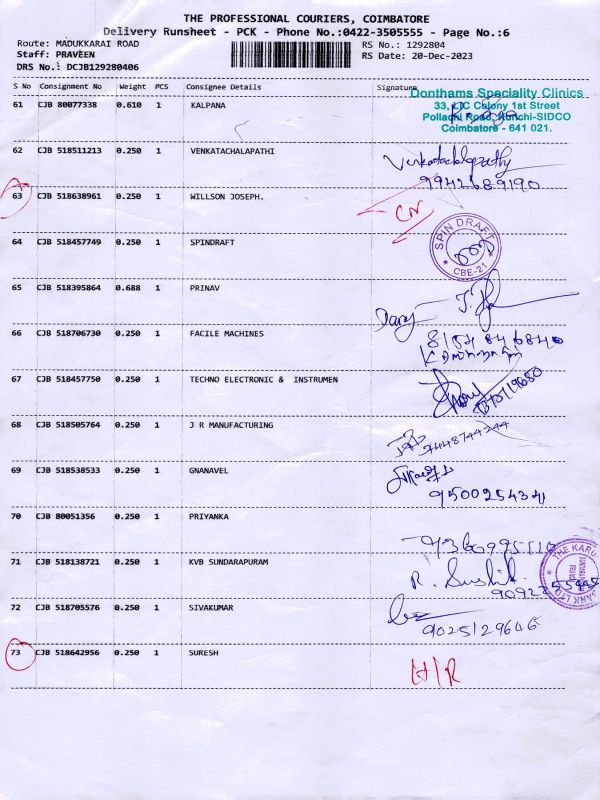 THE PROFESSIONAL COURIERS, COIMBATORE
Delivery Runsheet - PCK - Phone No.:0422-3505555 - Page No.:6
Route: MADUKKARAI ROAD
RS No.: 1292804
Staff: PRAVEEN
RS Date: 20-Dec-2023
DRS No.: DCJB129280406
S No Consignment No Weight PCS Consignee Details Signature
Donthams Speciality Clinics
33, LIC Colony 1st Street
Pollachi Road, Kurichi-SIDCO
Coimbatore - 641 021.
61 CJB 80077338 0.610 1 KALPANA
62 CJB 518511213 0.250 1 VENKATACHALAPATHI
Venkatachalapathy
9942689190
63 CJB 518638961 0.250 1 WILLSON JOSEPH.
CN
64 CJB 518457749 0.250 1 SPINDRAFT
SPIN DRAFT
CBE-21
65 CJB 518395864 0.688 1 PRINAV
66 CJB 518706730 0.250 1 FACILE MACHINES
67 CJB 518457750 0.250 1 TECHNO ELECTRONIC & INSTRUMEN
68 CJB 518505764 0.250 1 J R MANUFACTURING
9448744244
69 CJB 518538533 0.250 1 GNANAVEL
9500254341
70 CJB 80051356 0.250 1 PRIYANKA
71 CJB 518138721 0.250 1 KVB SUNDARAPURAM
R. Sushil
THE KARUR
BANK LTD
72 CJB 518705576 0.250 1 SIVAKUMAR
9025129646
73 CJB 518642956 0.250 1 SURESH
H/R